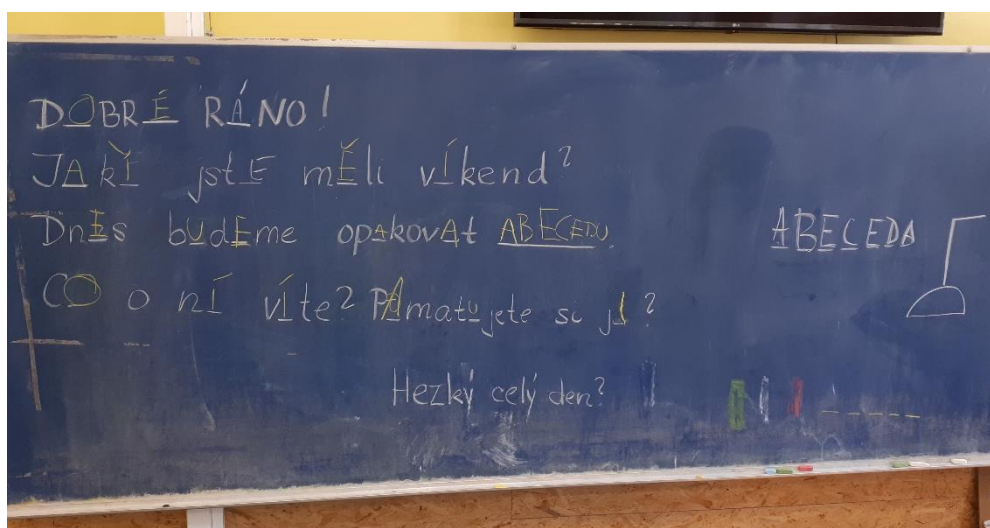 DOBRÉ RÁNO!
JAkÝ jstE mĚli vÍkend?
DnEs bUdEme opAkovAt ABECEDU.
ABECEDA
CO o nÍ vÍte? PAmatujete si jI?
Hezký celý den?